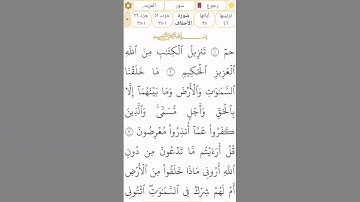 رجوع
سور
المزيد
ترتيبها
٤٦
آياتها
٣٥
سورة
الأحقاف
جزء ٢٦
حزب ٥١
بِسْمِ ٱللَّهِ ٱلرَّحْمَٰنِ ٱلرَّحِيمِ
حمٓ ١ تَنزِيلُ ٱلْكِتَٰبِ مِنَ ٱللَّهِ
ٱلْعَزِيزِ ٱلْحَكِيمِ ٢ مَا خَلَقْنَا
ٱلسَّمَٰوَٰتِ وَٱلْأَرْضَ وَمَا بَيْنَهُمَآ إِلَّا
بِٱلْحَقِّ وَأَجَلٍ مُّسَمًّى وَٱلَّذِينَ
كَفَرُوا۟ عَمَّآ أُنذِرُوا۟ مُعْرِضُونَ ٣
قُلْ أَرَءَيْتُم مَّا تَدْعُونَ مِن دُونِ
ٱللَّهِ أَرُونِى مَاذَا خَلَقُوا۟ مِنَ ٱلْأَرْضِ
أَمْ لَهُمْ شِرْكٌ فِى ٱلسَّمَٰوَٰتِ ٱئْتُونِى